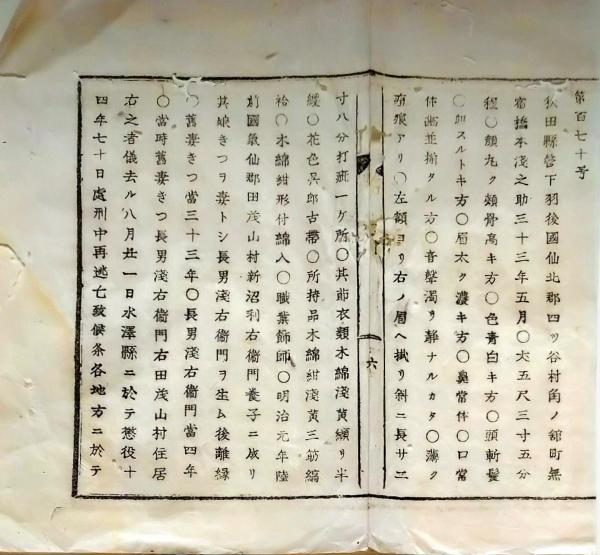 第百七十号
秋田縣管下羽後國仙北郡四ツ谷村角ノ舘町無
宿橋本淺之助三十三年五月〇丈五尺三寸五分
程〇顔丸ク頬骨高キ方〇色青白キ方〇頭斬髪
〇加スルトキ方〇眉太ク濃キ方〇鼻常体〇口常
体齒並揃タル方〇音聲濁リ静ナルカタ〇薄ク
疱痕アリ〇左額ヨリ右ノ眉ヘ掛リ斜ニ長サ二
六
寸八分打疵一ケ所〇其節衣類木綿淺黄繻リ半
纏〇花色呉郎古帶〇所持品木綿紺淺黄三筋縞
袷〇木綿紺形付綿入〇職業飾師〇明治元年陸
前國氣仙郡田茂山村新沼利右衞門養子ニ成リ
其娘きつヲ妻トシ長男淺右衞門ヲ生ム後離縁
〇舊妻きつ當三十三年〇長男淺右衞門當四年
〇當時舊妻きつ長男淺右衞門右田茂山村住居
右之者儀去ル八月廿一日水澤縣ニ於テ懲役十
四年七十日處刑中再逃亡致候条各地方ニ於テ